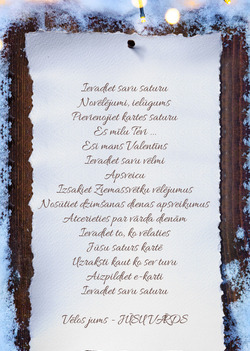 Ievadiet savu saturu
Novēlējumi, ielūgums
Pievienojiet kartes saturu
Es mīlu Tēvi ...
Esi mans Valentīns
Ievadiet savu vēlmi
Apsveicu
Izsakiet Ziemassvētku vēlējumus
Nosūtiet dzimšanas dienas apsveikumus
Atcerieties par vārda dienām
Ievadiet to, ko vēlaties
Jūsu saturs kartē
Uzraksti kaut ko ser tuvu
Aizpildiet e-karti
Ievadiet savu saturu
Vēlos jums - JŪSU VĀRDS